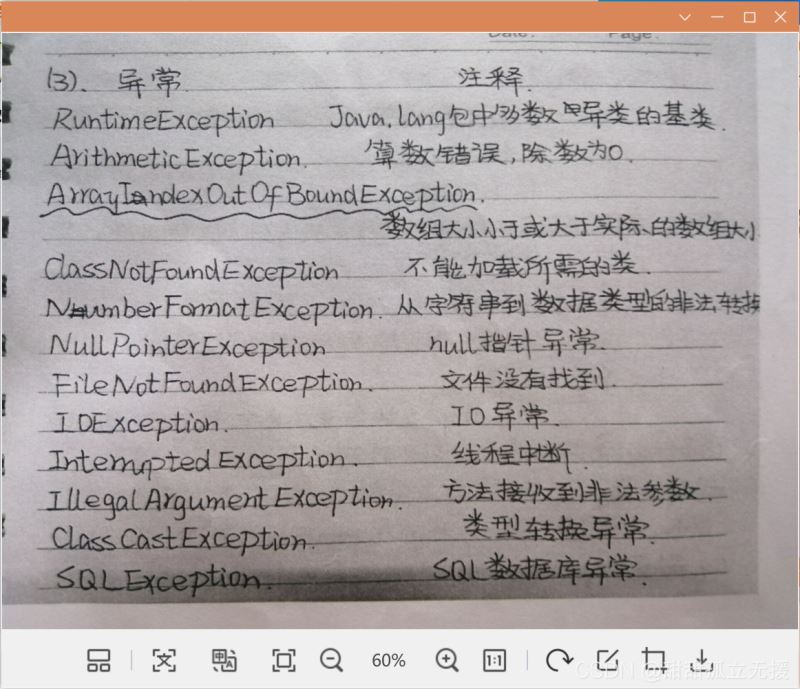 Date: Page:
(3). 异常 注释.
RuntimeException Java.lang包中多数异类的基类.
ArithmeticException. 算数错误,除数为0.
ArrayIndexOutOfBoundException.
数组大小小于或大于实际的数组大小
ClassNotFoundException 不能加载所需的类.
NumberFormatException. 从字符串到数据类型的非法转换
NullPointerException null指针异常.
FileNotFoundException. 文件没有找到.
IOException. IO异常.
InterruptedException. 线程中断.
IllegalArgumentException. 方法接收到非法参数.
ClassCastException. 类型转换异常.
SQLException. SQL数据库异常.
60% 1:1
CSDN @甜甜孤立无援